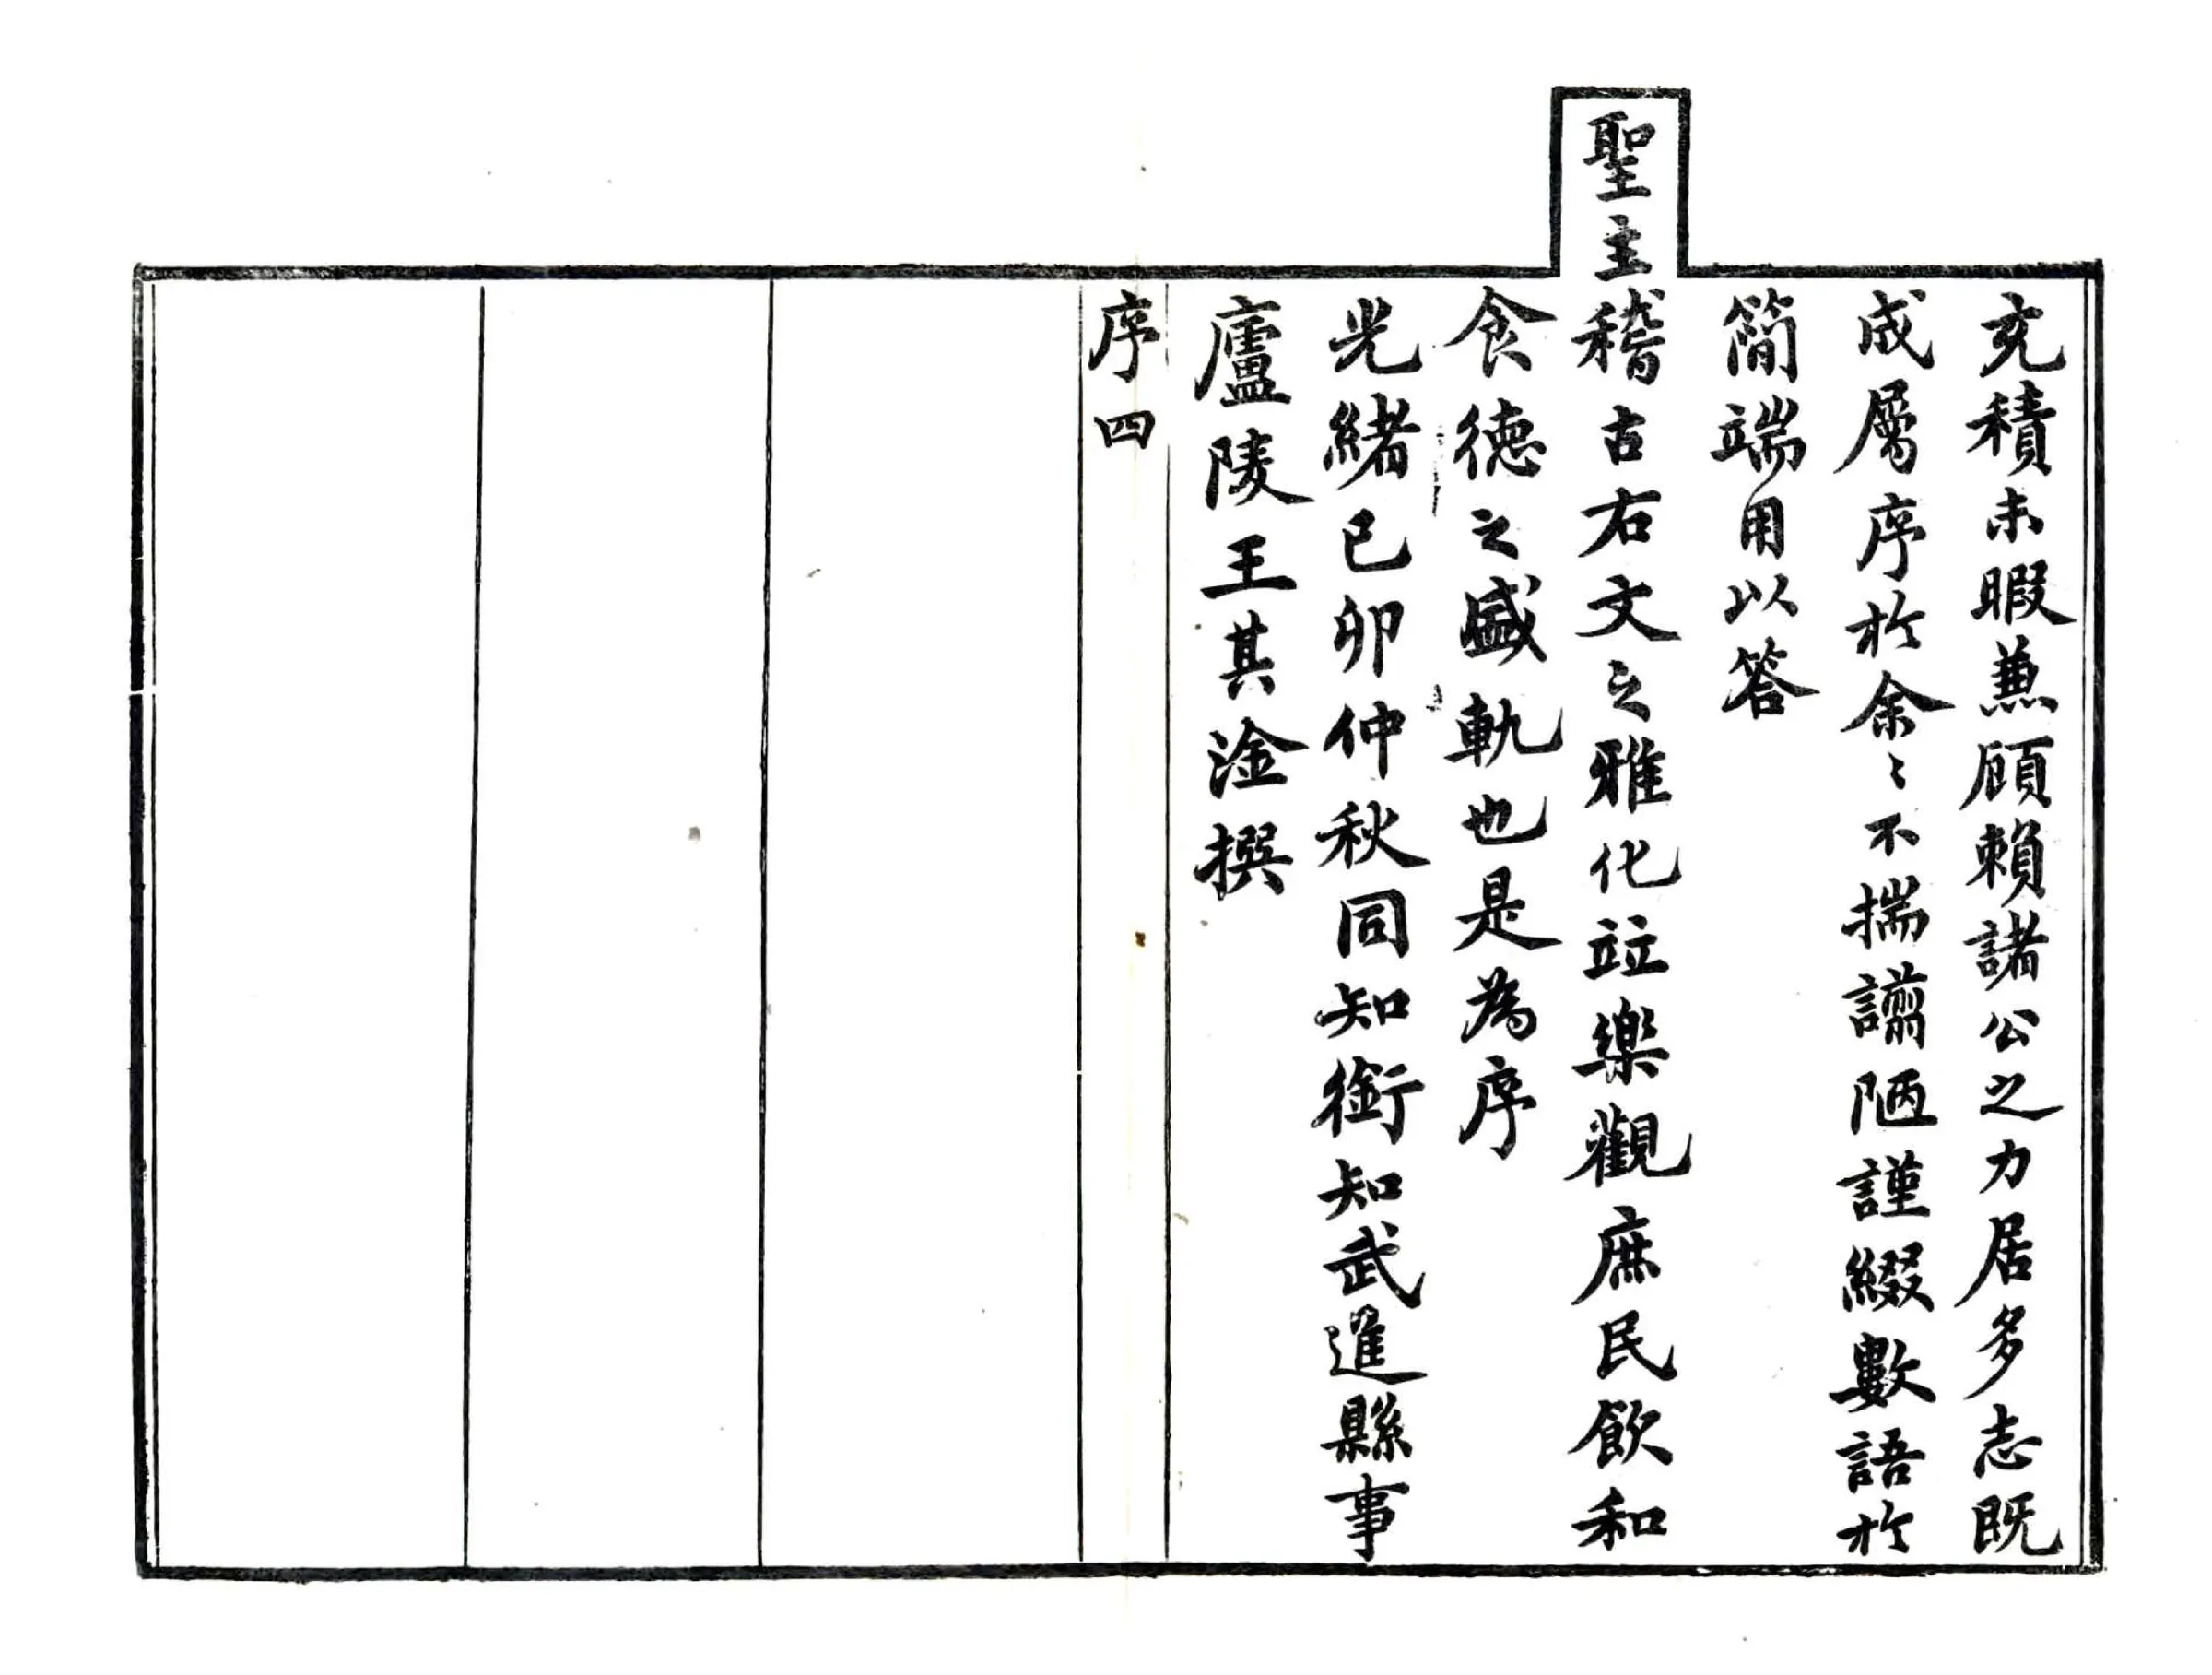 充積未暇兼顧賴諸公之力居多志既
成屬序於余〻不揣譾陋謹綴數語於
簡端用以答
聖主稽古右文之雅化竝樂觀庶民飲和
食德之盛軌也是為序
光緒己卯仲秋同知銜知武進縣事
廬陵王其淦撰
序四